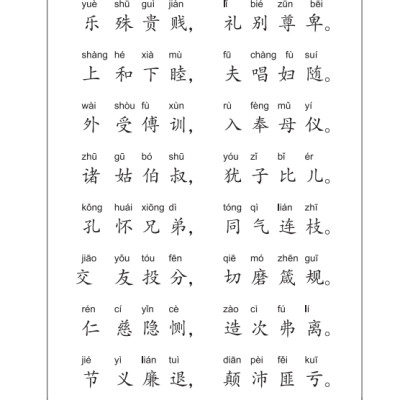 yuè shū guì jiàn lǐ bié zūn bēi
乐殊贵贱，礼别尊卑。
shàng hé xià mù fū chàng fù suí
上和下睦，夫唱妇随。
wài shòu fù xùn rù fèng mǔ yí
外受傅训，入奉母仪。
zhū gū bó shū yóu zǐ bǐ ér
诸姑伯叔，犹子比儿。
kǒng huái xiōng dì tóng qì lián zhī
孔怀兄弟，同气连枝。
jiāo yǒu tóu fēn qiē mó zhēn guī
交友投分，切磨箴规。
rén cí yǐn cè zào cì fú lí
仁慈隐恻，造次弗离。
jié yì lián tuì diān pèi fěi kuī
节义廉退，颠沛匪亏。